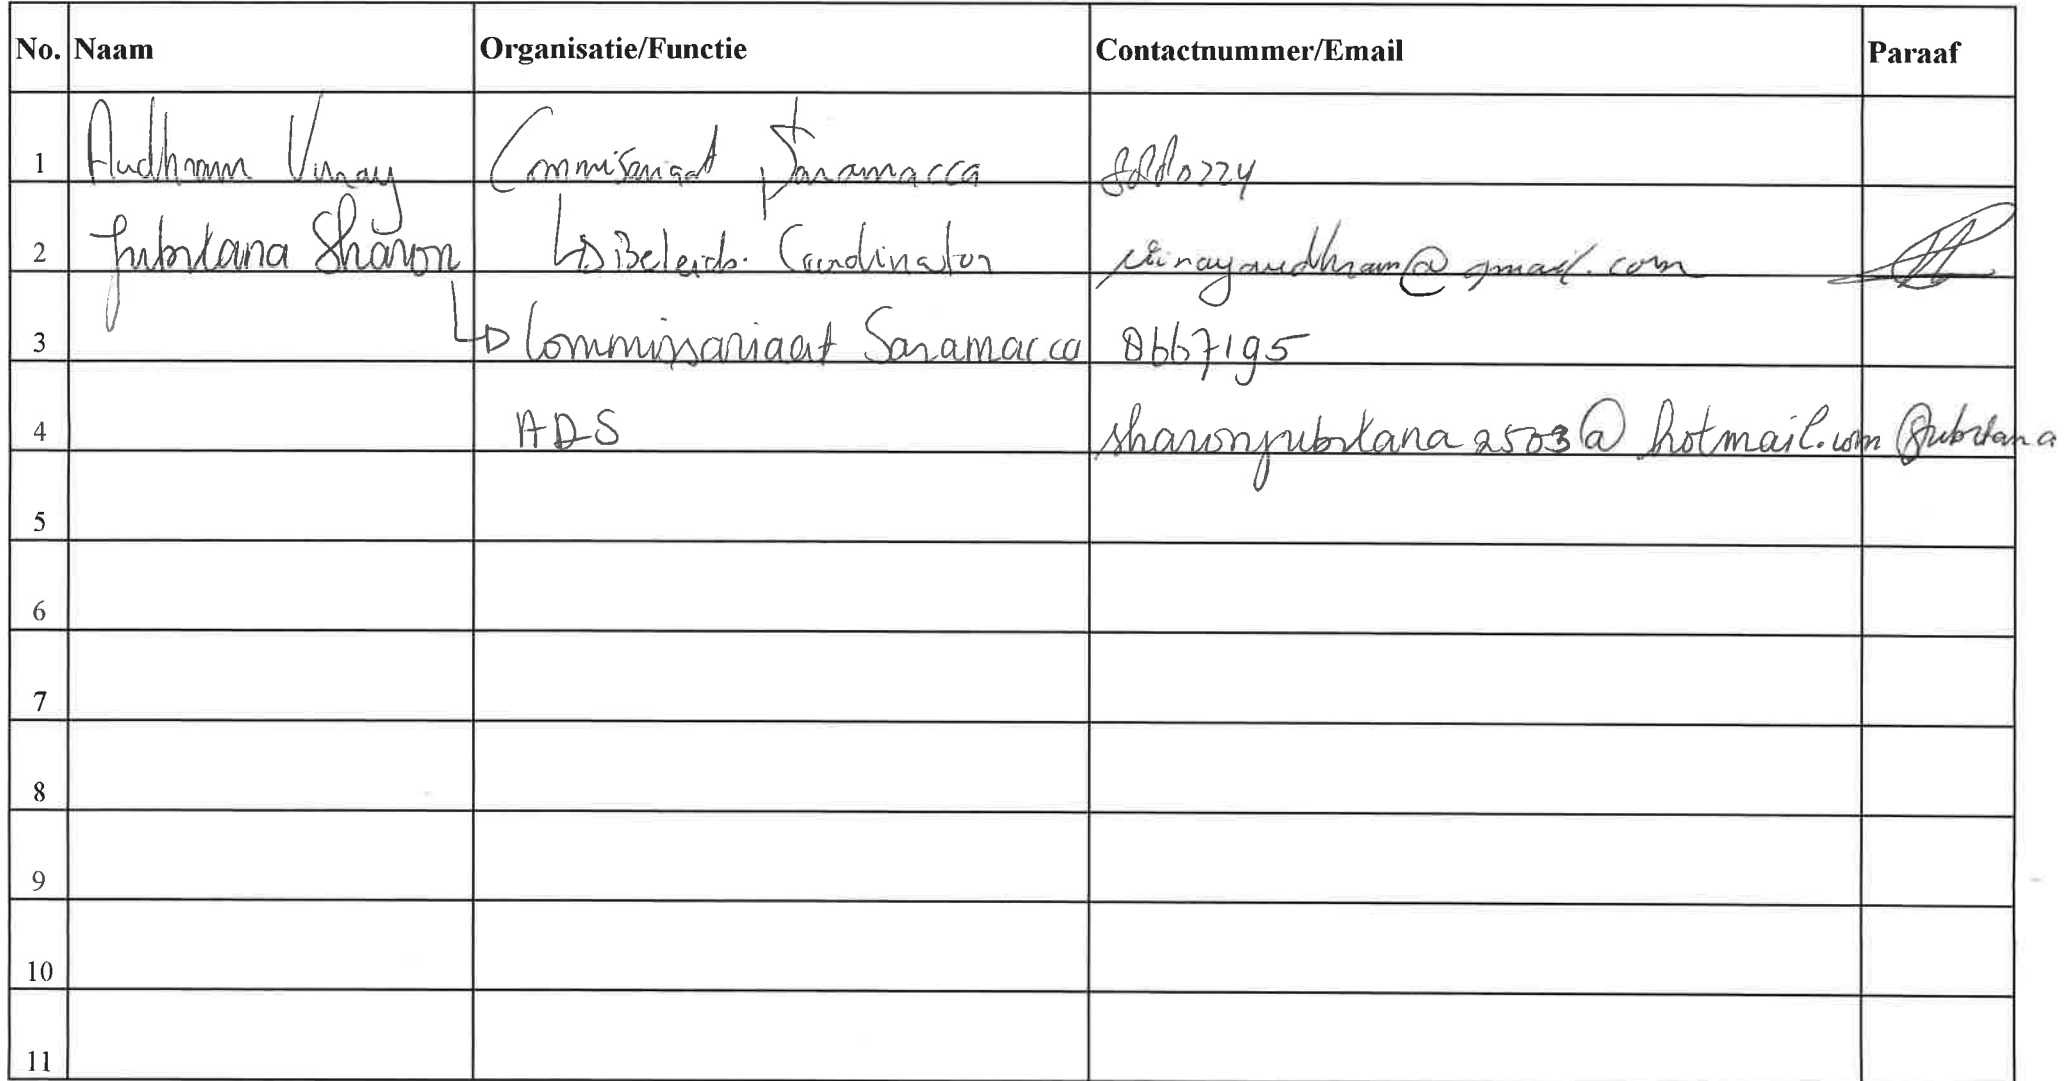 No. Naam Organisatie/Functie Contactnummer/Email Paraaf
1 Audhram Vinay Commissariaat Saramacca
2 Jubitana Sharon ↳ Beleids. Coordinator vinayaudhram@gmail.com
3 ↳ Commissariaat Saramacca 8667195
4 ADS sharonjubitana2503@hotmail.com Jubitana
5
6
7
8
9
10
11